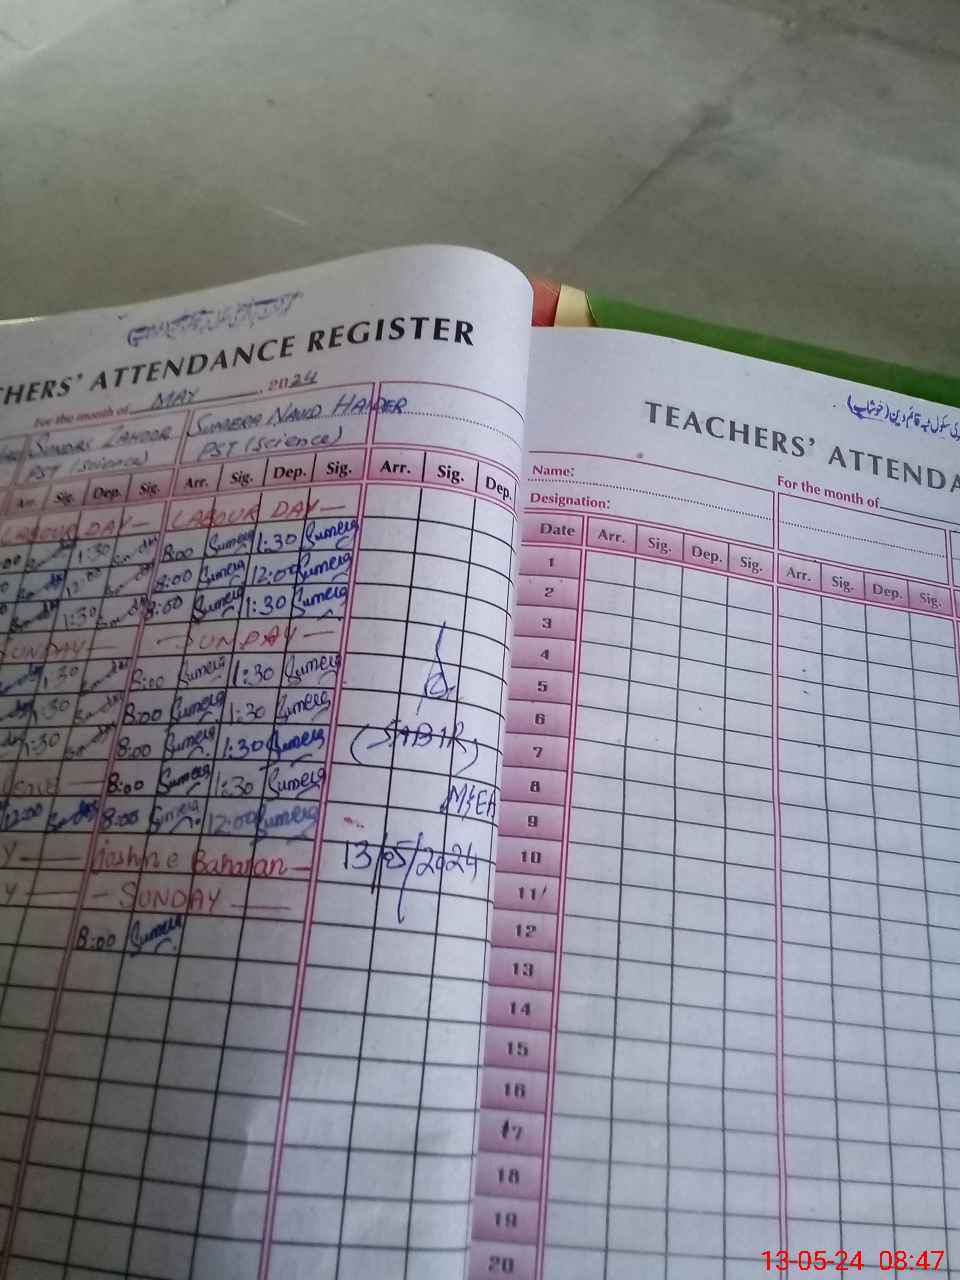 TEACHERS' ATTENDANCE REGISTER
For the month of MAY, 2024
SUNDAS ZAHOOR SUMERA NAVID HAIDER
PST (Science) PST (Science)
Arr. Sig. Dep. Sig. Arr. Sig. Dep. Sig. Arr. Sig. Dep.
LABOUR DAY — LABOUR DAY —
1:30 8:00 Sumera 1:30 Sumera
12:00 8:00 Sumera 12:00 Sumera
1:30 8:00 Sumera 1:30 Sumera
SUNDAY — SUNDAY —
1:30 8:00 Sumera 1:30 Sumera
1:30 8:00 Sumera 1:30 Sumera
1:30 8:00 Sumera 1:30 Sumera
8:00 Sumera 1:30 Sumera
12:00 8:00 Sumera 12:00 Sumera
Y — Jashn e Baharan —
Y — — SUNDAY —
8:00 Sumera
(SABIR)
M&EA
13/05/2024
TEACHERS' ATTENDA
Name:
Designation:
For the month of
Date Arr. Sig. Dep. Sig. Arr. Sig. Dep. Sig.
1
2
3
4
5
6
7
8
9
10
11
12
13
14
15
16
17
18
19
20
13-05-24 08:47